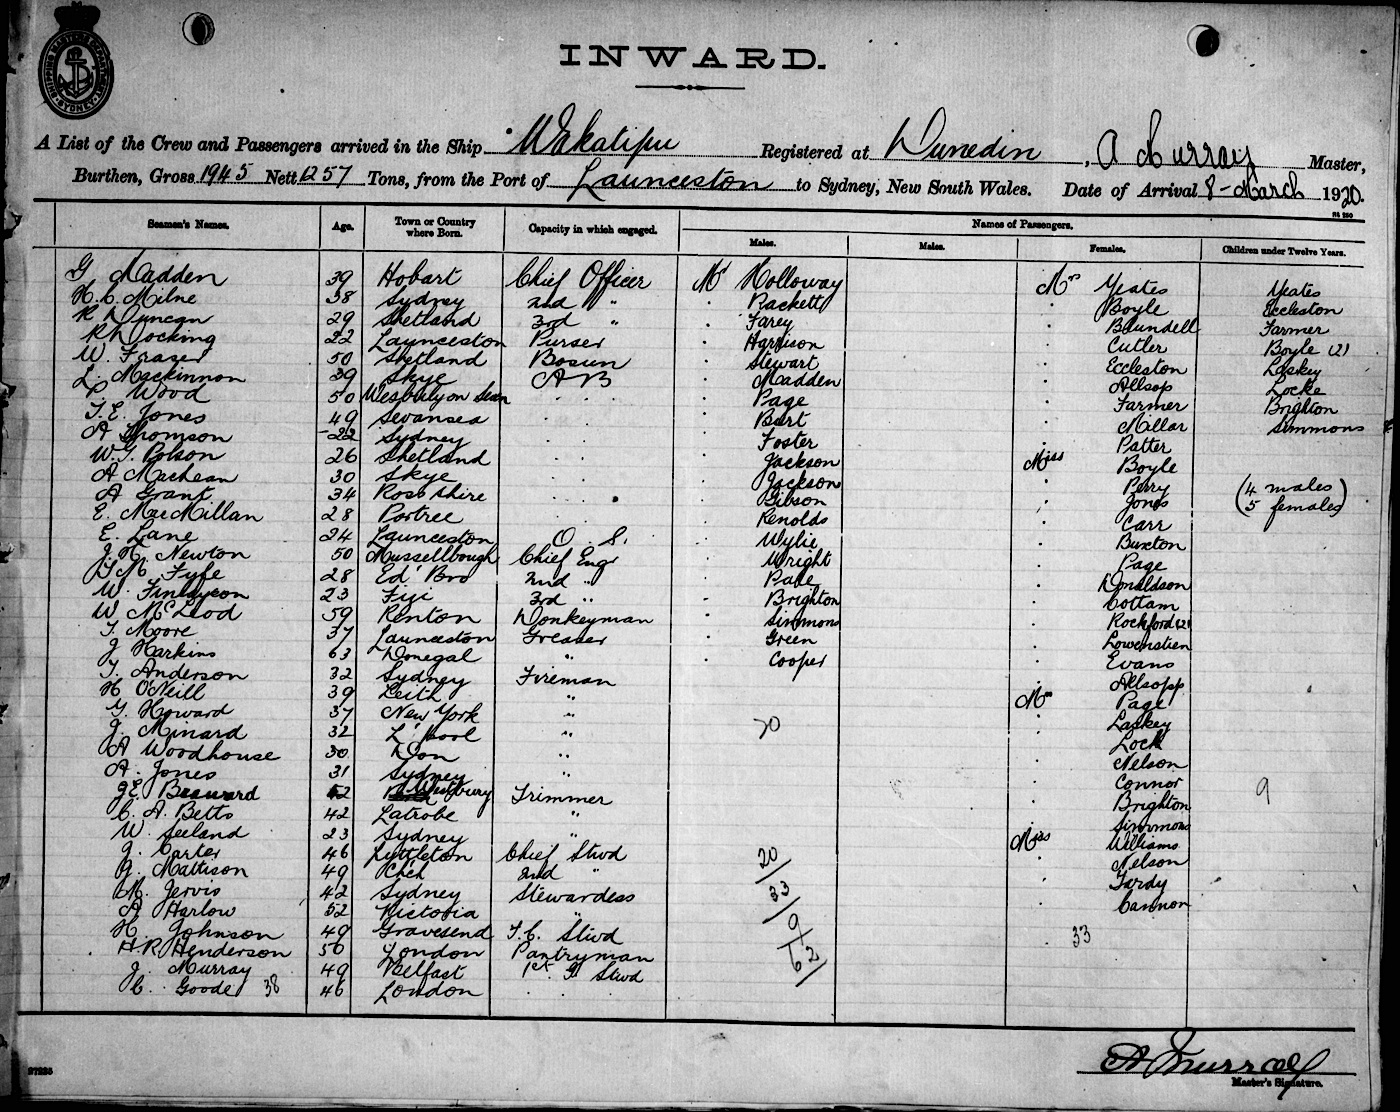 SHIPPING MASTERS DEPARTMENT SYDNEY
INWARD.
A List of the Crew and Passengers arrived in the Ship Wakatipu Registered at Dunedin, A Murray Master,
Burthen, Gross 1945 Nett 1257 Tons, from the Port of Launceston to Sydney, New South Wales. Date of Arrival 8 - March 1920.
Seamen's Names. Age. Town or Country where Born. Capacity in which engaged. Names of Passengers.
Males. Males. Females. Children under Twelve Years.
G Madden 39 Hobart Chief Officer Mr Holloway Mrs Yeates Yeates
H. C. Milne 38 Sydney 2nd " . Rackett . Boyle Eccleston
R Duncan 29 Shetland 3rd " . Farey . Blundell Farmer
R Docking 22 Launceston Purser . Harrison . Cutler Boyle (2)
W. Fraser 50 Shetland Bosun . Stewart . Eccleston Laskey
L. Mackinnon 39 Skye AB . Madden . Allsop Locke
Wood 50 Westbury on . . Page . Farmer Brighton
T. E. Jones 49 Swansea . . Burt . Millar Simmons
A Thomson 22 Sydney . . Foster . Patter
W. G. Polson 26 Shetland . . Jackson Miss Boyle
A Machean 30 Skye . . Jackson . Perry (4 males
A Grant 34 Ross shire . . Gibson . Jones 5 females)
E. MacMillan 28 Portree . . Renolds . Carr
E. Lane 24 Launceston O. S. . Wylie . Buxton
J. H. Newton 50 Mussellbough Chief Engr . Wright . Page
Fyfe 28 Ed' Bro 2nd " . Page . Donaldson
W. Finlayson 23 Fiji 3rd " . Brighton . Cottam
W McLeod 59 Renton Donkeyman . Simmons . Rockford (2)
T. Moore 37 Launceston Greaser . Green . Lowenstien
J Harkins 63 Donegal " . Cooper . Evans
T. Anderson 32 Sydney Fireman . Allsopp
H O'Neill 39 Leith " Mrs Page
G. Howard 37 New York " 20 . Laskey
J. Minard 32 L'pool " . Lock
A Woodhouse 30 Don " . Nelson
A. Jones 31 Sydney " . Connor 9
J E Beauward 52 Westbury Trimmer . Brighton
C. A. Betts 42 Latrobe " . Simmons
W. Seeland 23 Sydney Miss Williams
J. Carter 46 Lyttleton Chief Stwd 20 . Nelson
G. Mattison 49 Ch'ch 2nd " . Tardy
M. Jervis 42 Sydney Stewardess 33 . Cannon
A Harlow 52 Victoria "
H. Johnson 49 Gravesend F. C. Stwd 9 33
H. R Henderson 50 London Pantryman 62
J. Murray 49 Belfast 1st G Stwd
C. Goode 38 46 London .
A Murray
Master's Signature.